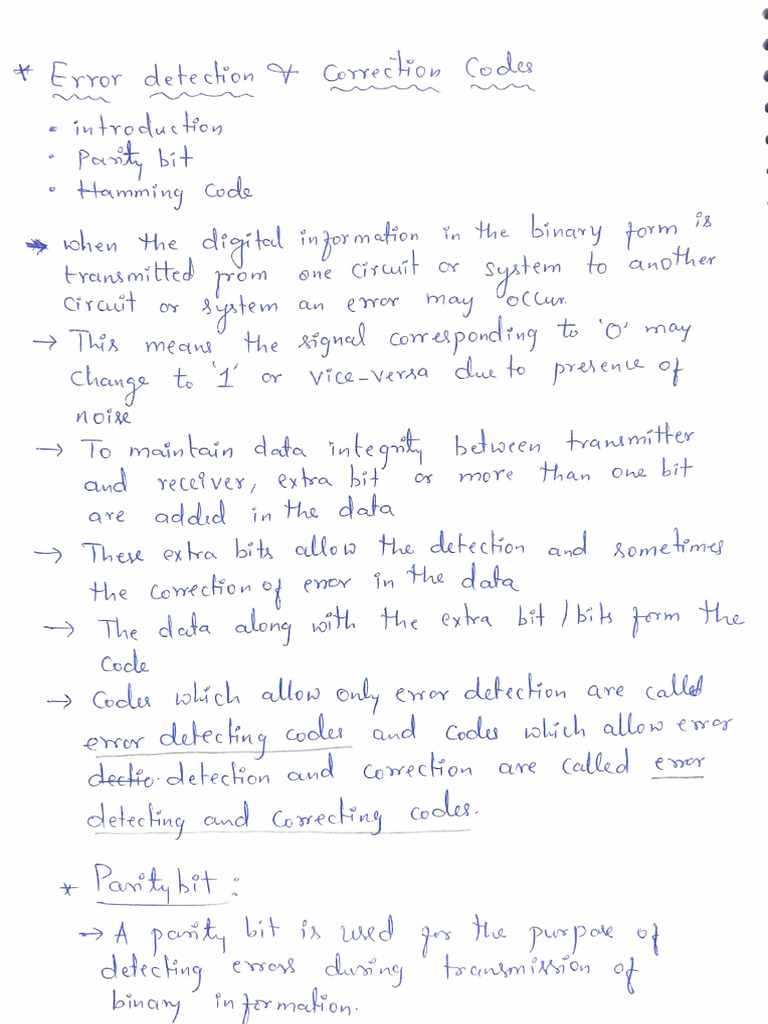 * Error detection & Correction Codes
• introduction
• Parity bit
• Hamming Code
→ when the digital information in the binary form is
transmitted from one circuit or system to another
circuit or system an error may occur.
→ This means the signal corresponding to '0' may
change to '1' or vice-versa due to presence of
noise
→ To maintain data integrity between transmitter
and receiver, extra bit or more than one bit
are added in the data
→ These extra bits allow the detection and sometimes
the correction of error in the data
→ The data along with the extra bit / bits form the
code
→ Codes which allow only error detection are called
error detecting codes and codes which allow error
dectio. detection and correction are called error
detecting and correcting codes.
* Parity bit :
→ A parity bit is used for the purpose of
detecting errors during transmission of
binary information.